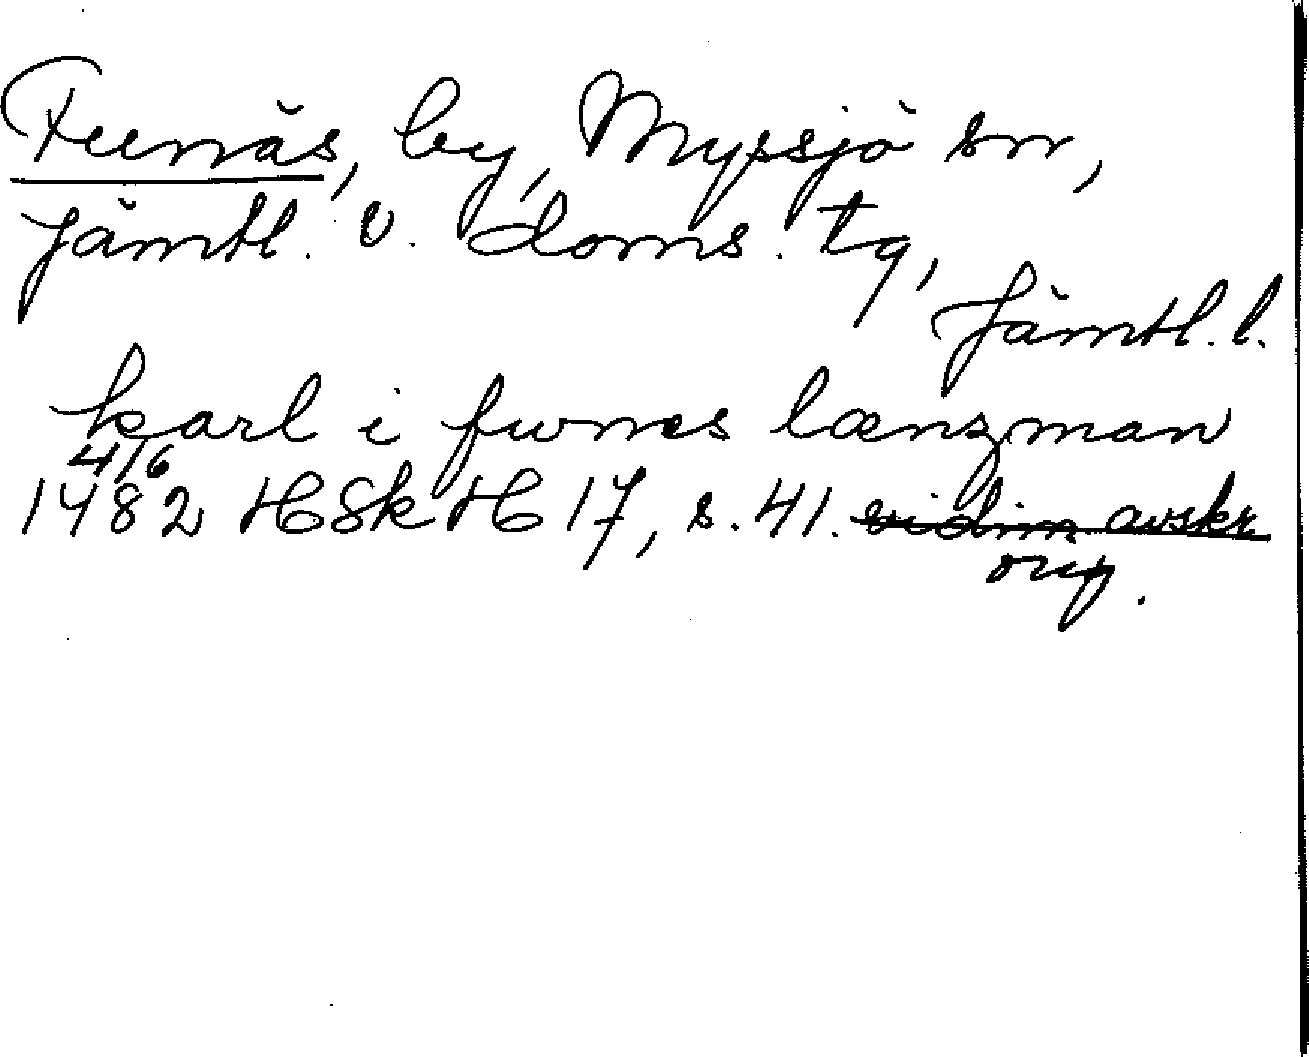 Funäs, by, Myssjö sn,
Jämtl. v. doms. tg,
Jämtl. l.
karl i fwnes lænzman
4/6
1482 HSkH 17, s. 41. vidim avskr
orig.